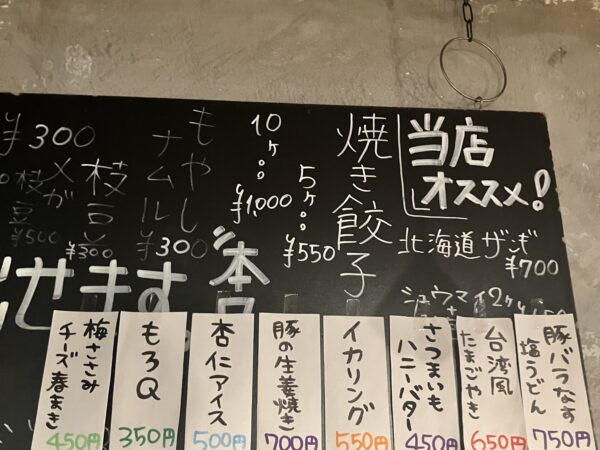 当店
オススメ!
北海道ザンギ
¥700
シュウマイ2ヶ
焼き餃子
5ヶ…¥550
10ヶ…¥1,000
もやし
ナムル
¥300
枝豆
¥300
メガ
枝豆
¥500
¥300
せます。
豚バラなす
塩うどん
750円
台湾風
たまごやき
650円
さつまいも
ハニーバター
450円
イカリング
550円
豚の生姜焼き
700円
杏仁アイス
500円
もろQ
350円
梅ささみ
チーズ春まき
450円